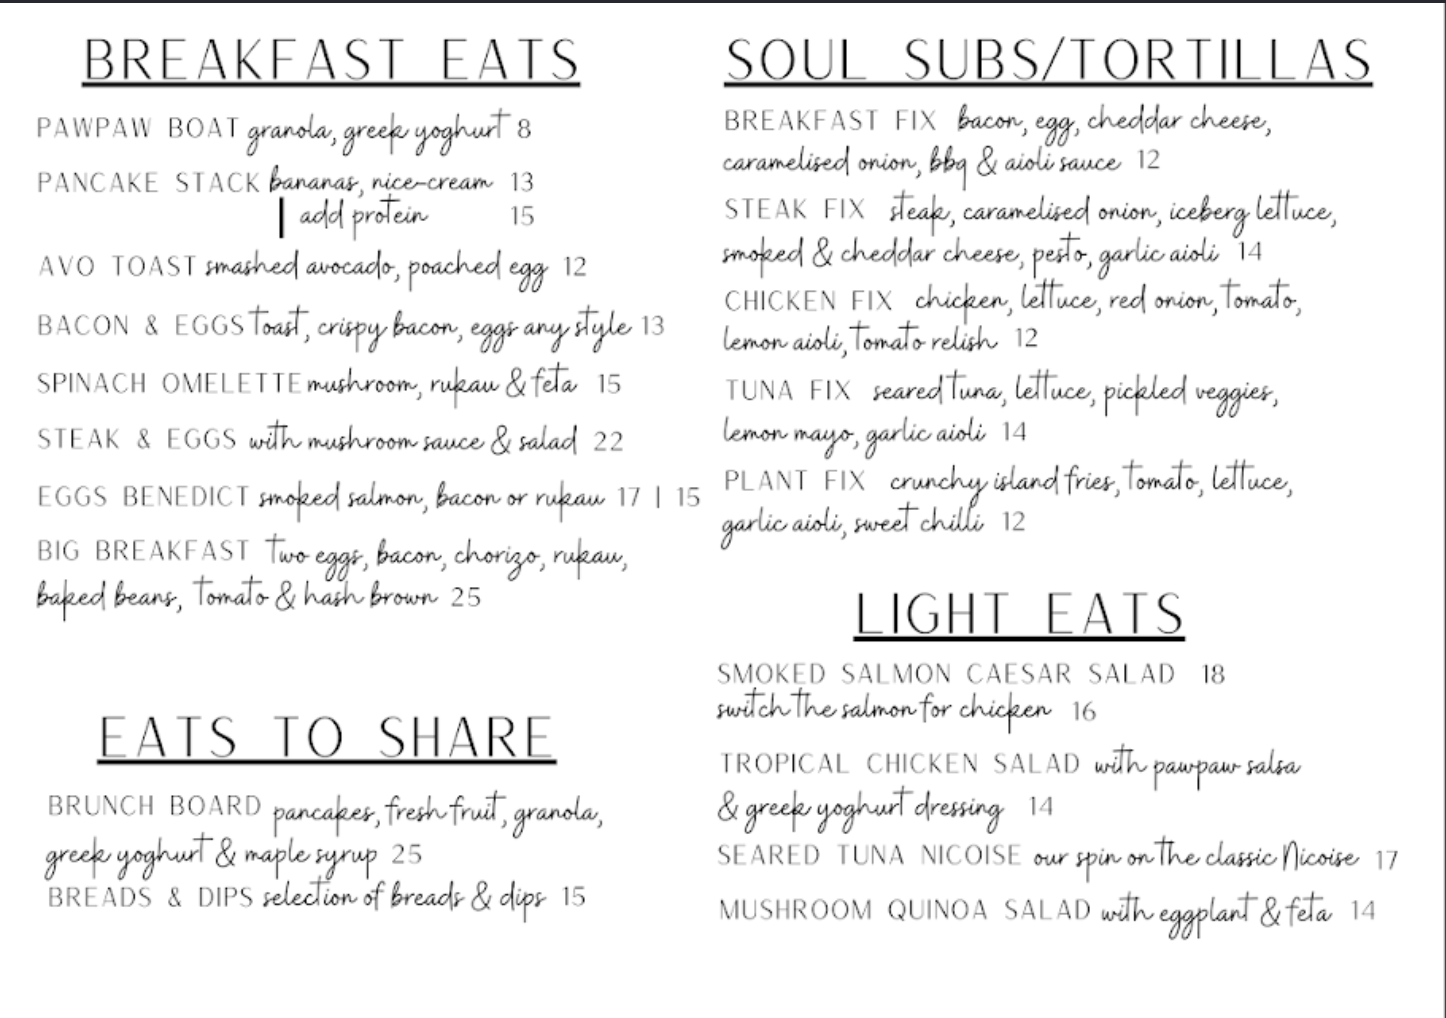 BREAKFAST EATS
PAWPAW BOAT granola, greek yoghurt 8
PANCAKE STACK bananas, nice-cream 13
| add protein 15
AVO TOAST smashed avocado, poached egg 12
BACON & EGGS toast, crispy bacon, eggs any style 13
SPINACH OMELETTE mushroom, rukau & feta 15
STEAK & EGGS with mushroom sauce & salad 22
EGGS BENEDICT smoked salmon, bacon or rukau 17 | 15
BIG BREAKFAST two eggs, bacon, chorizo, rukau,
baked beans, tomato & hash brown 25
EATS TO SHARE
BRUNCH BOARD pancakes, fresh fruit, granola,
greek yoghurt & maple syrup 25
BREADS & DIPS selection of breads & dips 15
SOUL SUBS/TORTILLAS
BREAKFAST FIX bacon, egg, cheddar cheese,
caramelised onion, bbq & aioli sauce 12
STEAK FIX steak, caramelised onion, iceberg lettuce,
smoked & cheddar cheese, pesto, garlic aioli 14
CHICKEN FIX chicken, lettuce, red onion, tomato,
lemon aioli, tomato relish 12
TUNA FIX seared tuna, lettuce, pickled veggies,
lemon mayo, garlic aioli 14
PLANT FIX crunchy island fries, tomato, lettuce,
garlic aioli, sweet chilli 12
LIGHT EATS
SMOKED SALMON CAESAR SALAD 18
switch the salmon for chicken 16
TROPICAL CHICKEN SALAD with pawpaw salsa
& greek yoghurt dressing 14
SEARED TUNA NICOISE our spin on the classic Nicoise 17
MUSHROOM QUINOA SALAD with eggplant & feta 14